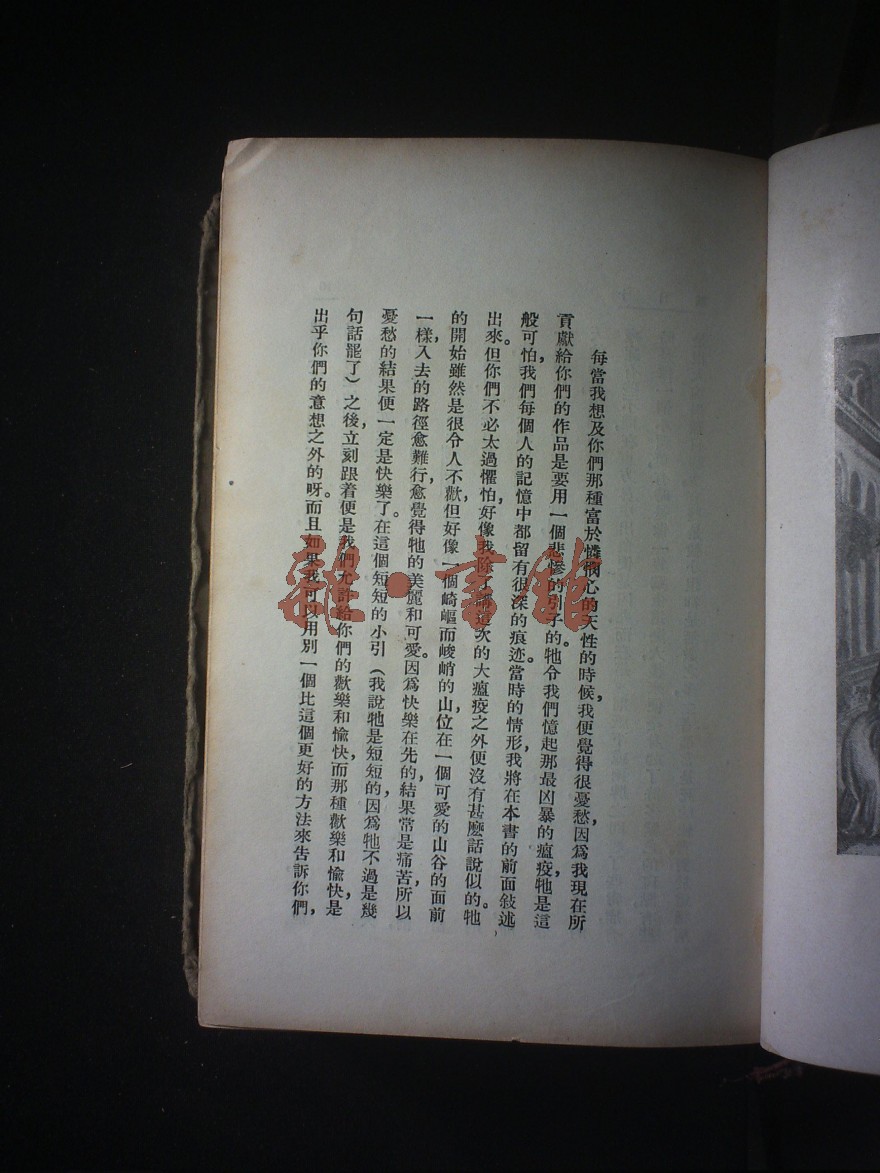 每當我想及你們那種富於憐憫心的天性的時候，我便覺得很憂愁，因爲我現在所
貢獻給你們的作品是要用一個悲慘的引子的。牠令我們憶起那最凶暴的瘟疫，牠是這
般可怕，我們每個人的記憶中都留有很深的痕迹。當時的情形，我將在本書的前面敍述
出來。但你們不必太過懼怕，好像我除了講這次的大瘟疫之外便沒有甚麽話說似的。牠
的開始雖然是很令人不歡，但好像一個崎嶇而峻峭的山位在一個可愛的山谷的面前
一樣，入去的路徑愈難行，愈覺得牠的美麗和可愛。因爲快樂在先的，結果常是痛苦，所以
憂愁的結果便一定是快樂了。在這個短短的小引（我說牠是短短的，因爲牠不過是幾
句話罷了）之後，立刻跟着便是我們允許給你們的歡樂和愉快，而那種歡樂和愉快是
出乎你們的意想之外的呀。而且如果我可以用別一個比這個更好的方法來告訴你們，
雜·書館